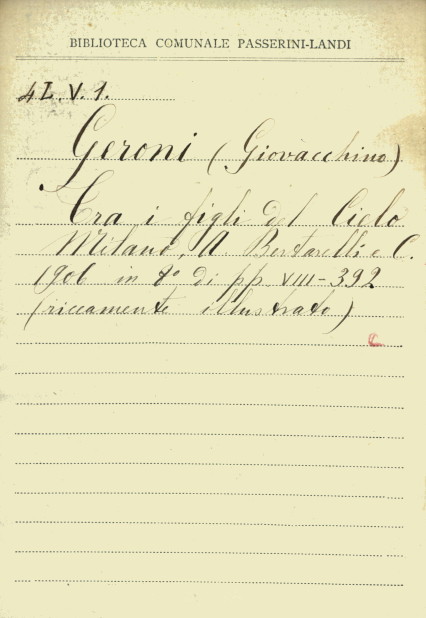 BIBLIOTECA COMUNALE PASSERINI-LANDI
4L.V.1.
Geroni (Giovacchino)
Tra i figli del Cielo
Milano, A. Bertarelli e C.
1906 in 8° di pp. VIII-392
(riccamente illustrato)
C